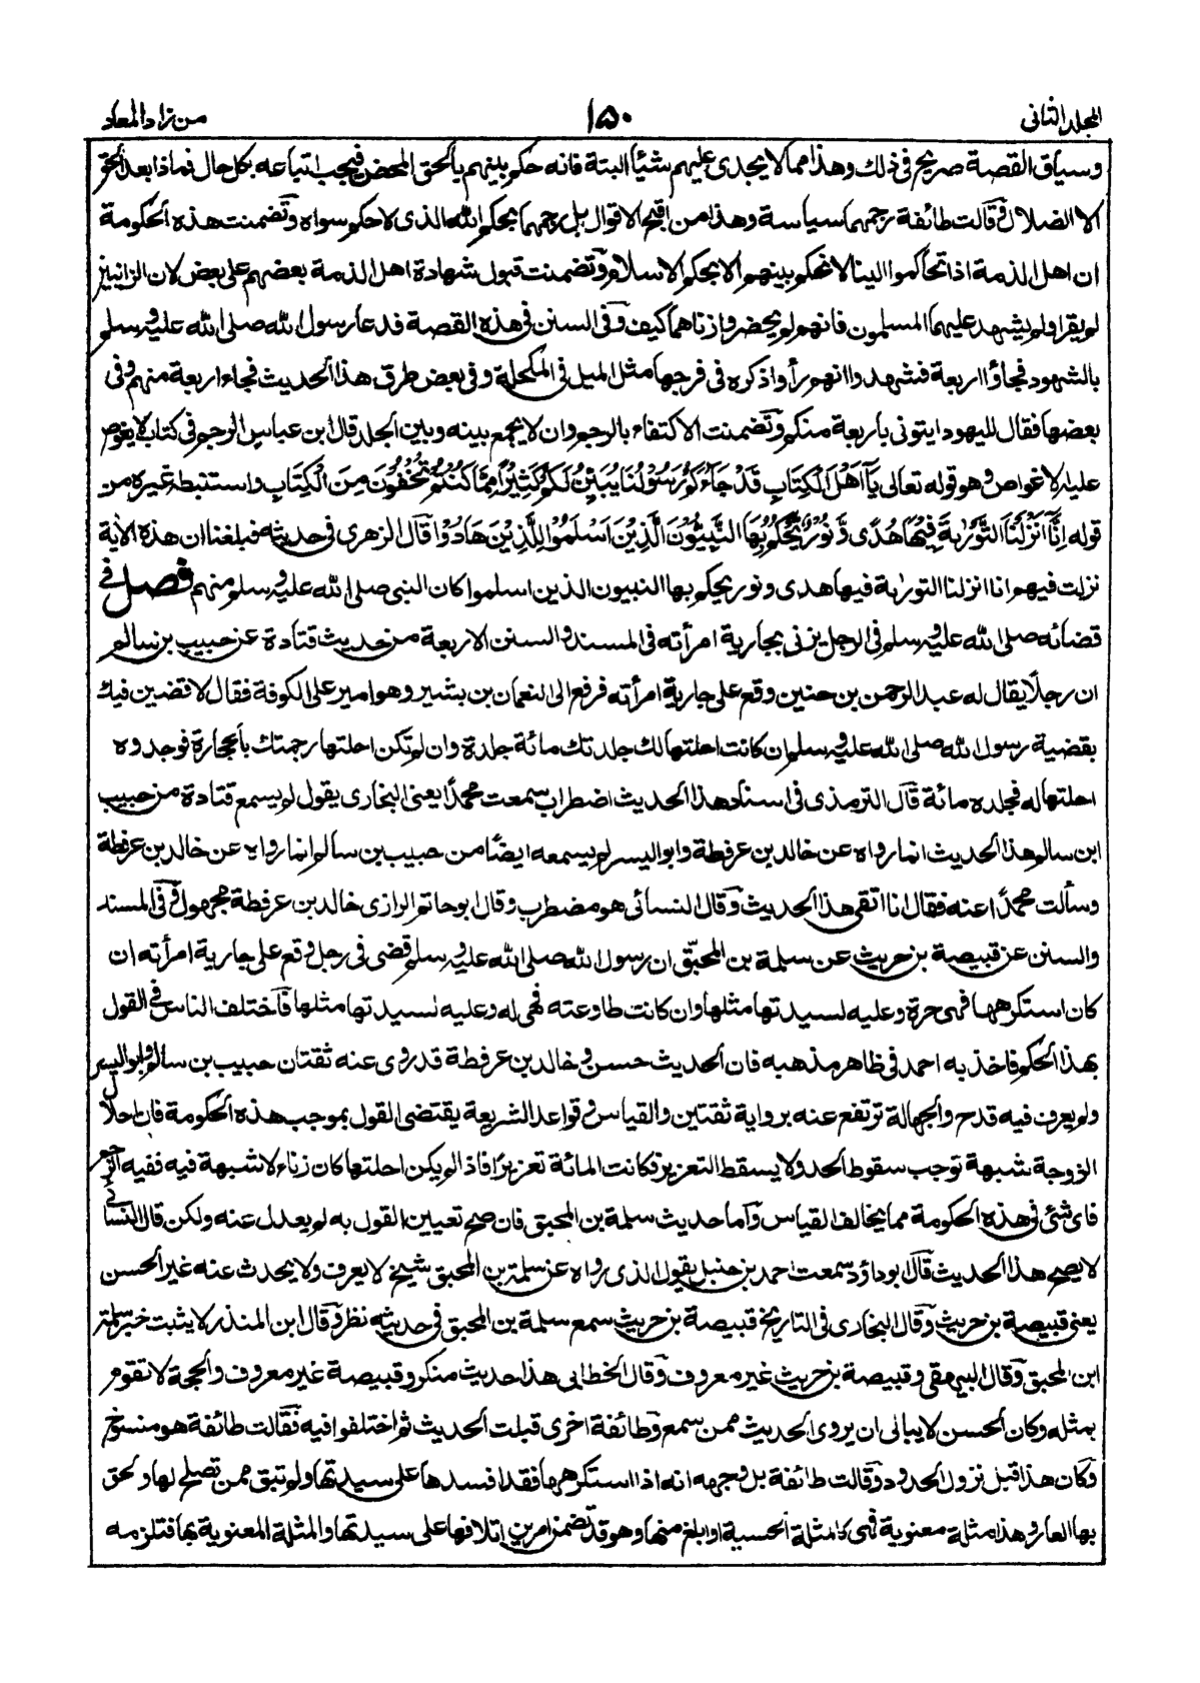 المجلد الثانى
١٥٠
من زاد المعاد
وسياق القصة صريح فى ذلك وهذا مما لا يجدى عليهم شيئا البتة فانه حكم بينهم بالحق المحض فيجب اتباعه بكل حال فماذا بعد الحق
الا الضلال وقالت طائفة رجمهما سياسة وهذا من اقبح الاقوال بل رجمهما بحكم الله الذى لا حكم سواه وتضمنت هذه الحكومة
ان اهل الذمة اذا تحاكموا الينا لا نحكم بينهم الا بحكم الاسلام وتضمنت قبول شهادة اهل الذمة بعضهم على بعض لان الزانيين
لم يقرا ولم يشهد عليهما المسلمون فانهم لم يحضروا زناهما كيف وفى السنن فى هذه القصة فدعا رسول الله صلى الله عليه وسلم
بالشهود فجاؤا اربعة فشهدوا انهم رأوا ذكره فى فرجها مثل الميل فى المكحلة وفى بعض طرق هذا الحديث فجاء اربعة منهم وفى
بعضها فقال لليهود ايتونى باربعة منكم وتضمنت الاكتفاء بالرجم وان لا يجمع بينه وبين الجلد قال ابن عباس الرجم فى كتاب لا يغوص
عليه الا غواص وهو قوله تعالى يَآ اَهْلَ الْكِتَابِ قَدْ جَآءَكُمْ رَسُوْلُنَا يُبَيِّنُ لَكُمْ كَثِيْرًا مِمَّا كُنْتُمْ تُخْفُوْنَ مِنَ الْكِتَابِ واستنبطه غيره من
قوله اِنَّا اَنْزَلْنَا التَّوْرٰىةَ فِيْهَا هُدًى وَّ نُوْرٌ يَّحْكُمُ بِهَا النَّبِيُّوْنَ الَّذِيْنَ اَسْلَمُوْا لِلَّذِيْنَ هَادُوْا قال الزهرى فى حديثه فبلغنا ان هذه الاية
نزلت فيهم انا انزلنا التورىة فيها هدى ونور يحكم بها النبيون الذين اسلموا كان النبى صلى الله عليه وسلم منهم فصل فى
قضائه صلى الله عليه وسلم فى الرجل يزنى بجارية امرأته فى المسند والسنن الاربعة من حديث قتادة عن حبيب بن سالم
ان رجلا يقال له عبد الرحمن بن حنين وقع على جارية امرأته فرفع الى النعمان بن بشير وهو امير على الكوفة فقال لاقضين فيك
بقضية رسول الله صلى الله عليه وسلم ان كانت احلتها لك جلدتك مائة جلدة وان لم تكن احلتها رجمتك بالحجارة فوجدوه
احلتها له فجلده مائة قال الترمذى فى اسناد هذا الحديث اضطراب سمعت محمدا يعنى البخارى يقول لم يسمع قتادة من حبيب
ابن سالم هذا الحديث انما رواه عن خالد بن عرفطة وابو اليسر لم يسمعه ايضا من حبيب بن سالم انما رواه عن خالد بن عرفطة
وسألت محمدا عنه فقال انا اتقى هذا الحديث وقال النسائى هو مضطرب وقال ابو حاتم الرازى خالد بن عرفطة مجهول وفى المسند
والسنن عن قبيصة بن حريث عن سلمة بن المحبّق ان رسول الله صلى الله عليه وسلم قضى فى رجل وقع على جارية امرأته ان
كان استكرهها فهى حرة وعليه لسيدتها مثلها وان كانت طاوعته فهى له وعليه لسيدتها مثلها فاختلف الناس فى القول
بهذا الحكم فاخذ به احمد فى ظاهر مذهبه فان الحديث حسن وخالد بن عرفطة قد روى عنه ثقتان حبيب بن سالم وابو اليسر
ولم يعرف فيه قدح والجهالة ترتفع عنه برواية ثقتين والقياس وقواعد الشريعة يقتضى القول بموجب هذه الحكومة فان احلال
الزوجة شبهة توجب سقوط الحد ولا يسقط التعزير فكانت المائة تعزيرا فاذا لم يكن احلتها كان زناء لا شبهة فيه ففيه الرجم
فاى شئ فى هذه الحكومة مما يخالف القياس وأما حديث سلمة بن المحبق فان صح تعيين القول به لم يعدل عنه ولكن قال النسائى
لا يصح هذا الحديث قال ابو داؤد سمعت احمد بن حنبل يقول الذى رواه عن سلمة بن المحبق شيخ لا يعرف ولا يحدث عنه غير الحسن
يعنى قبيصة بن حريث وقال البخارى فى التاريخ قبيصة بن حريث سمع سلمة بن المحبق فى حديثه نظر وقال ابن المنذر لا يثبت خبر سلمة
ابن المحبق وقال البيهقى وقبيصة بن حريث غير معروف وقال الخطابى هذا حديث منكر وقبيصة غير معروف والحجة لا تقوم
بمثله وكان الحسن لا يبالى ان يروى الحديث ممن سمع وطائفة اخرى قبلت الحديث ثم اختلفوا فيه فقالت طائفة هو منسوخ
وكان هذا قبل نزول الحدود وقالت طائفة بل وجهه انه اذا استكرهها فقد افسدها على سيدتها ولم تبق ممن تصلح لها ولحق
بها العار وهذا مثلة معنوية فهى كالمثلة الحسية او ابلغ منها وهو قد تضمن امرين اتلافها على سيدتها والمثلة المعنوية بها فتلزمه